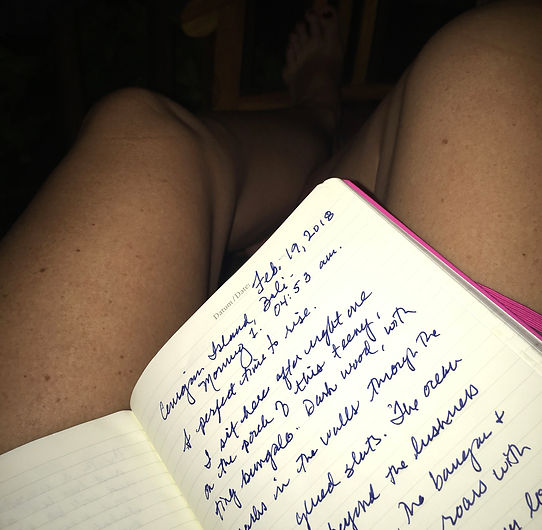 Datum/Date:
Feb. 19, 2018
Island, Bali -
Morning 1: 04:53 am.
A perfect time to rise.
I sit here after night one
on the porch of this teeny,
tiny bungalo. Dark wood, with
in the walls through the
slats. The ocean
beyond the lushness
the banyan +
roars with